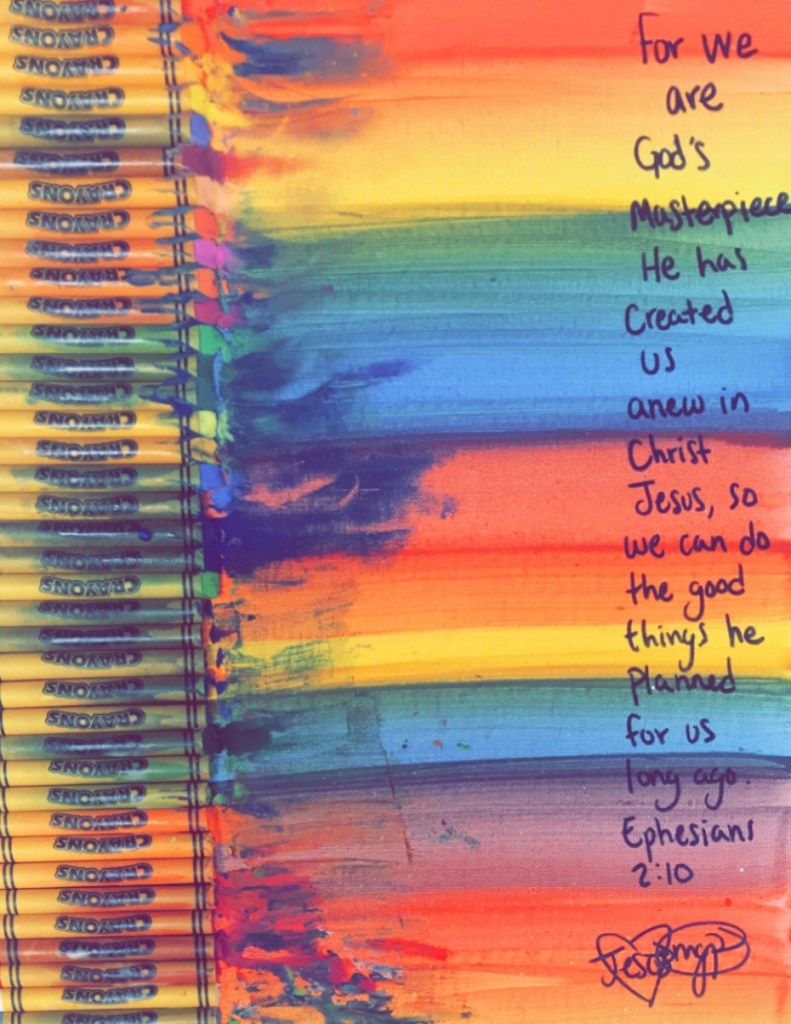 CRAYONS
CRAYONS
CRAYONS
CRAYONS
CRAYONS
CRAYONS
CRAYONS
CRAYONS
CRAYONS
CRAYONS
CRAYONS
CRAYONS
CRAYONS
CRAYONS
CRAYONS
CRAYONS
CRAYONS
CRAYONS
CRAYONS
CRAYONS
CRAYONS
CRAYONS
CRAYONS
CRAYONS
CRAYONS
CRAYONS
CRAYONS
CRAYONS
CRAYONS
CRAYONS
CRAYONS
CRAYONS
CRAYONS
CRAYONS
CRAYONS
CRAYONS
CRAYONS
For we
are
God's
Masterpiece
He has
Created
us
anew in
Christ
Jesus, so
we can do
the good
things he
Planned
for us
long ago.
Ephesians
2:10